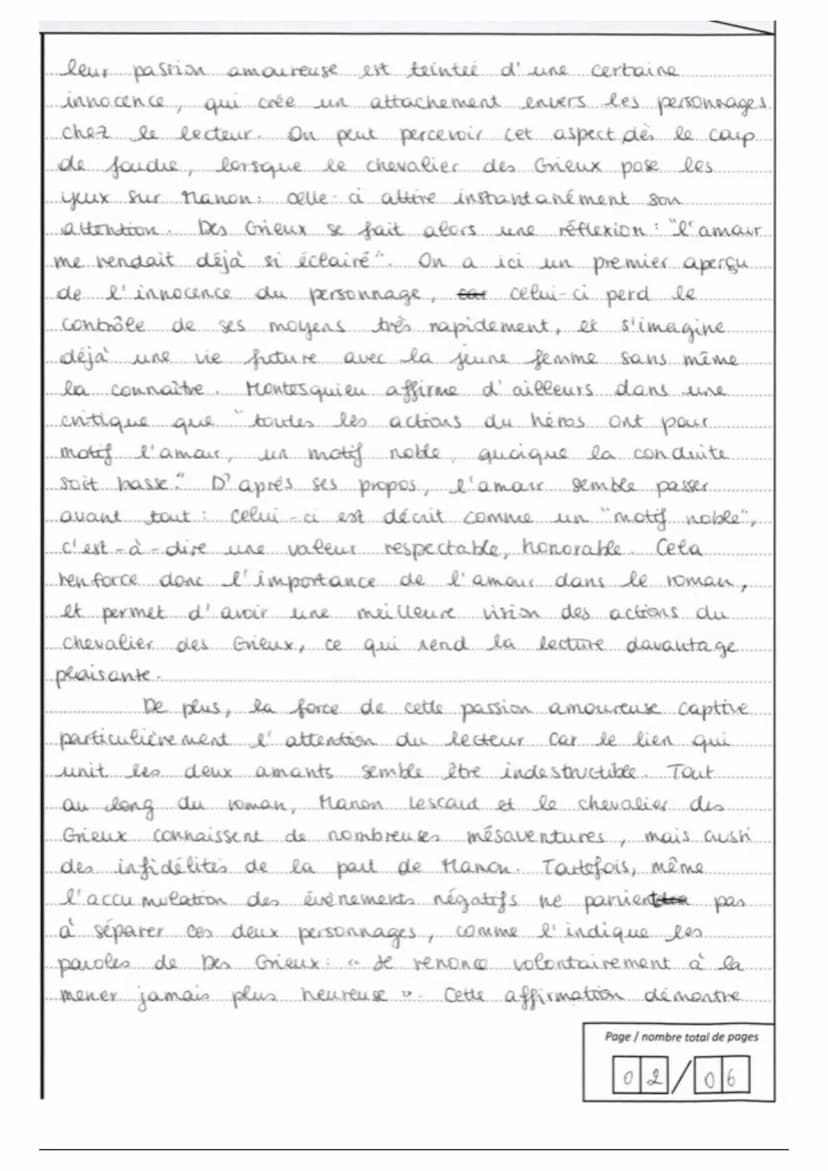 leur passion amoureuse est teintée d'une certaine
innocence, qui crée un attachement envers les personnages
chez le lecteur. On peut percevoir cet aspect dès le coup
de foudre, lorsque le chevalier des Grieux pose les
yeux sur Manon : celle-ci attire instantanément son
attention. Des Grieux se fait alors une réflexion : "l'amour
me rendait déjà si éclairé". On a ici un premier aperçu
de l'innocence du personnage, car celui-ci perd le
contrôle de ses moyens très rapidement, et s'imagine
déjà une vie future avec la jeune femme sans même
la connaître. Montesquieu affirme d'ailleurs dans une
critique que "toutes les actions du héros ont pour
motif l'amour, un motif noble, quoique la conduite
soit basse." D'après ses propos, l'amour semble passer
avant tout : celui-ci est décrit comme un "motif noble",
c'est-à-dire une valeur respectable, honorable. Cela
renforce donc l'importance de l'amour dans le roman,
et permet d'avoir une meilleure vision des actions du
chevalier des Grieux, ce qui rend la lecture davantage
plaisante.
De plus, la force de cette passion amoureuse captive
particulièrement l'attention du lecteur car le lien qui
unit les deux amants semble être indestructible. Tout
au long du roman, Manon Lescaut et le chevalier des
Grieux connaissent de nombreuses mésaventures, mais aussi
des infidélités de la part de Manon. Toutefois, même
l'accumulation des événements négatifs ne parvient pas
à séparer ces deux personnages, comme l'indique les
paroles de Des Grieux : « Je renonce volontairement à la
mener jamais plus heureuse ». Cette affirmation démontre
Page / nombre total de pages
02/06